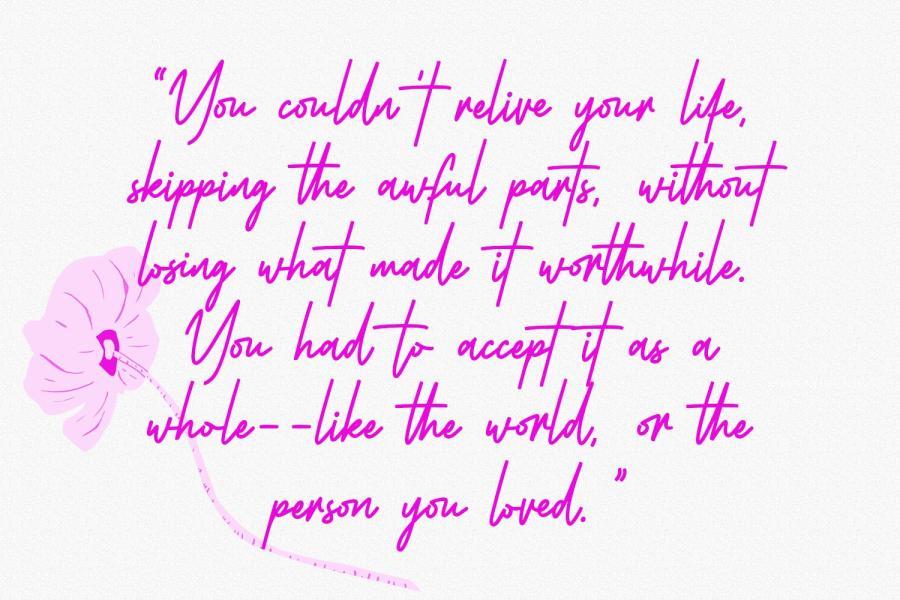 “You couldn't relive your life,
skipping the awful parts, without
losing what made it worthwhile.
You had to accept it as a
whole--like the world, or the
person you loved.”